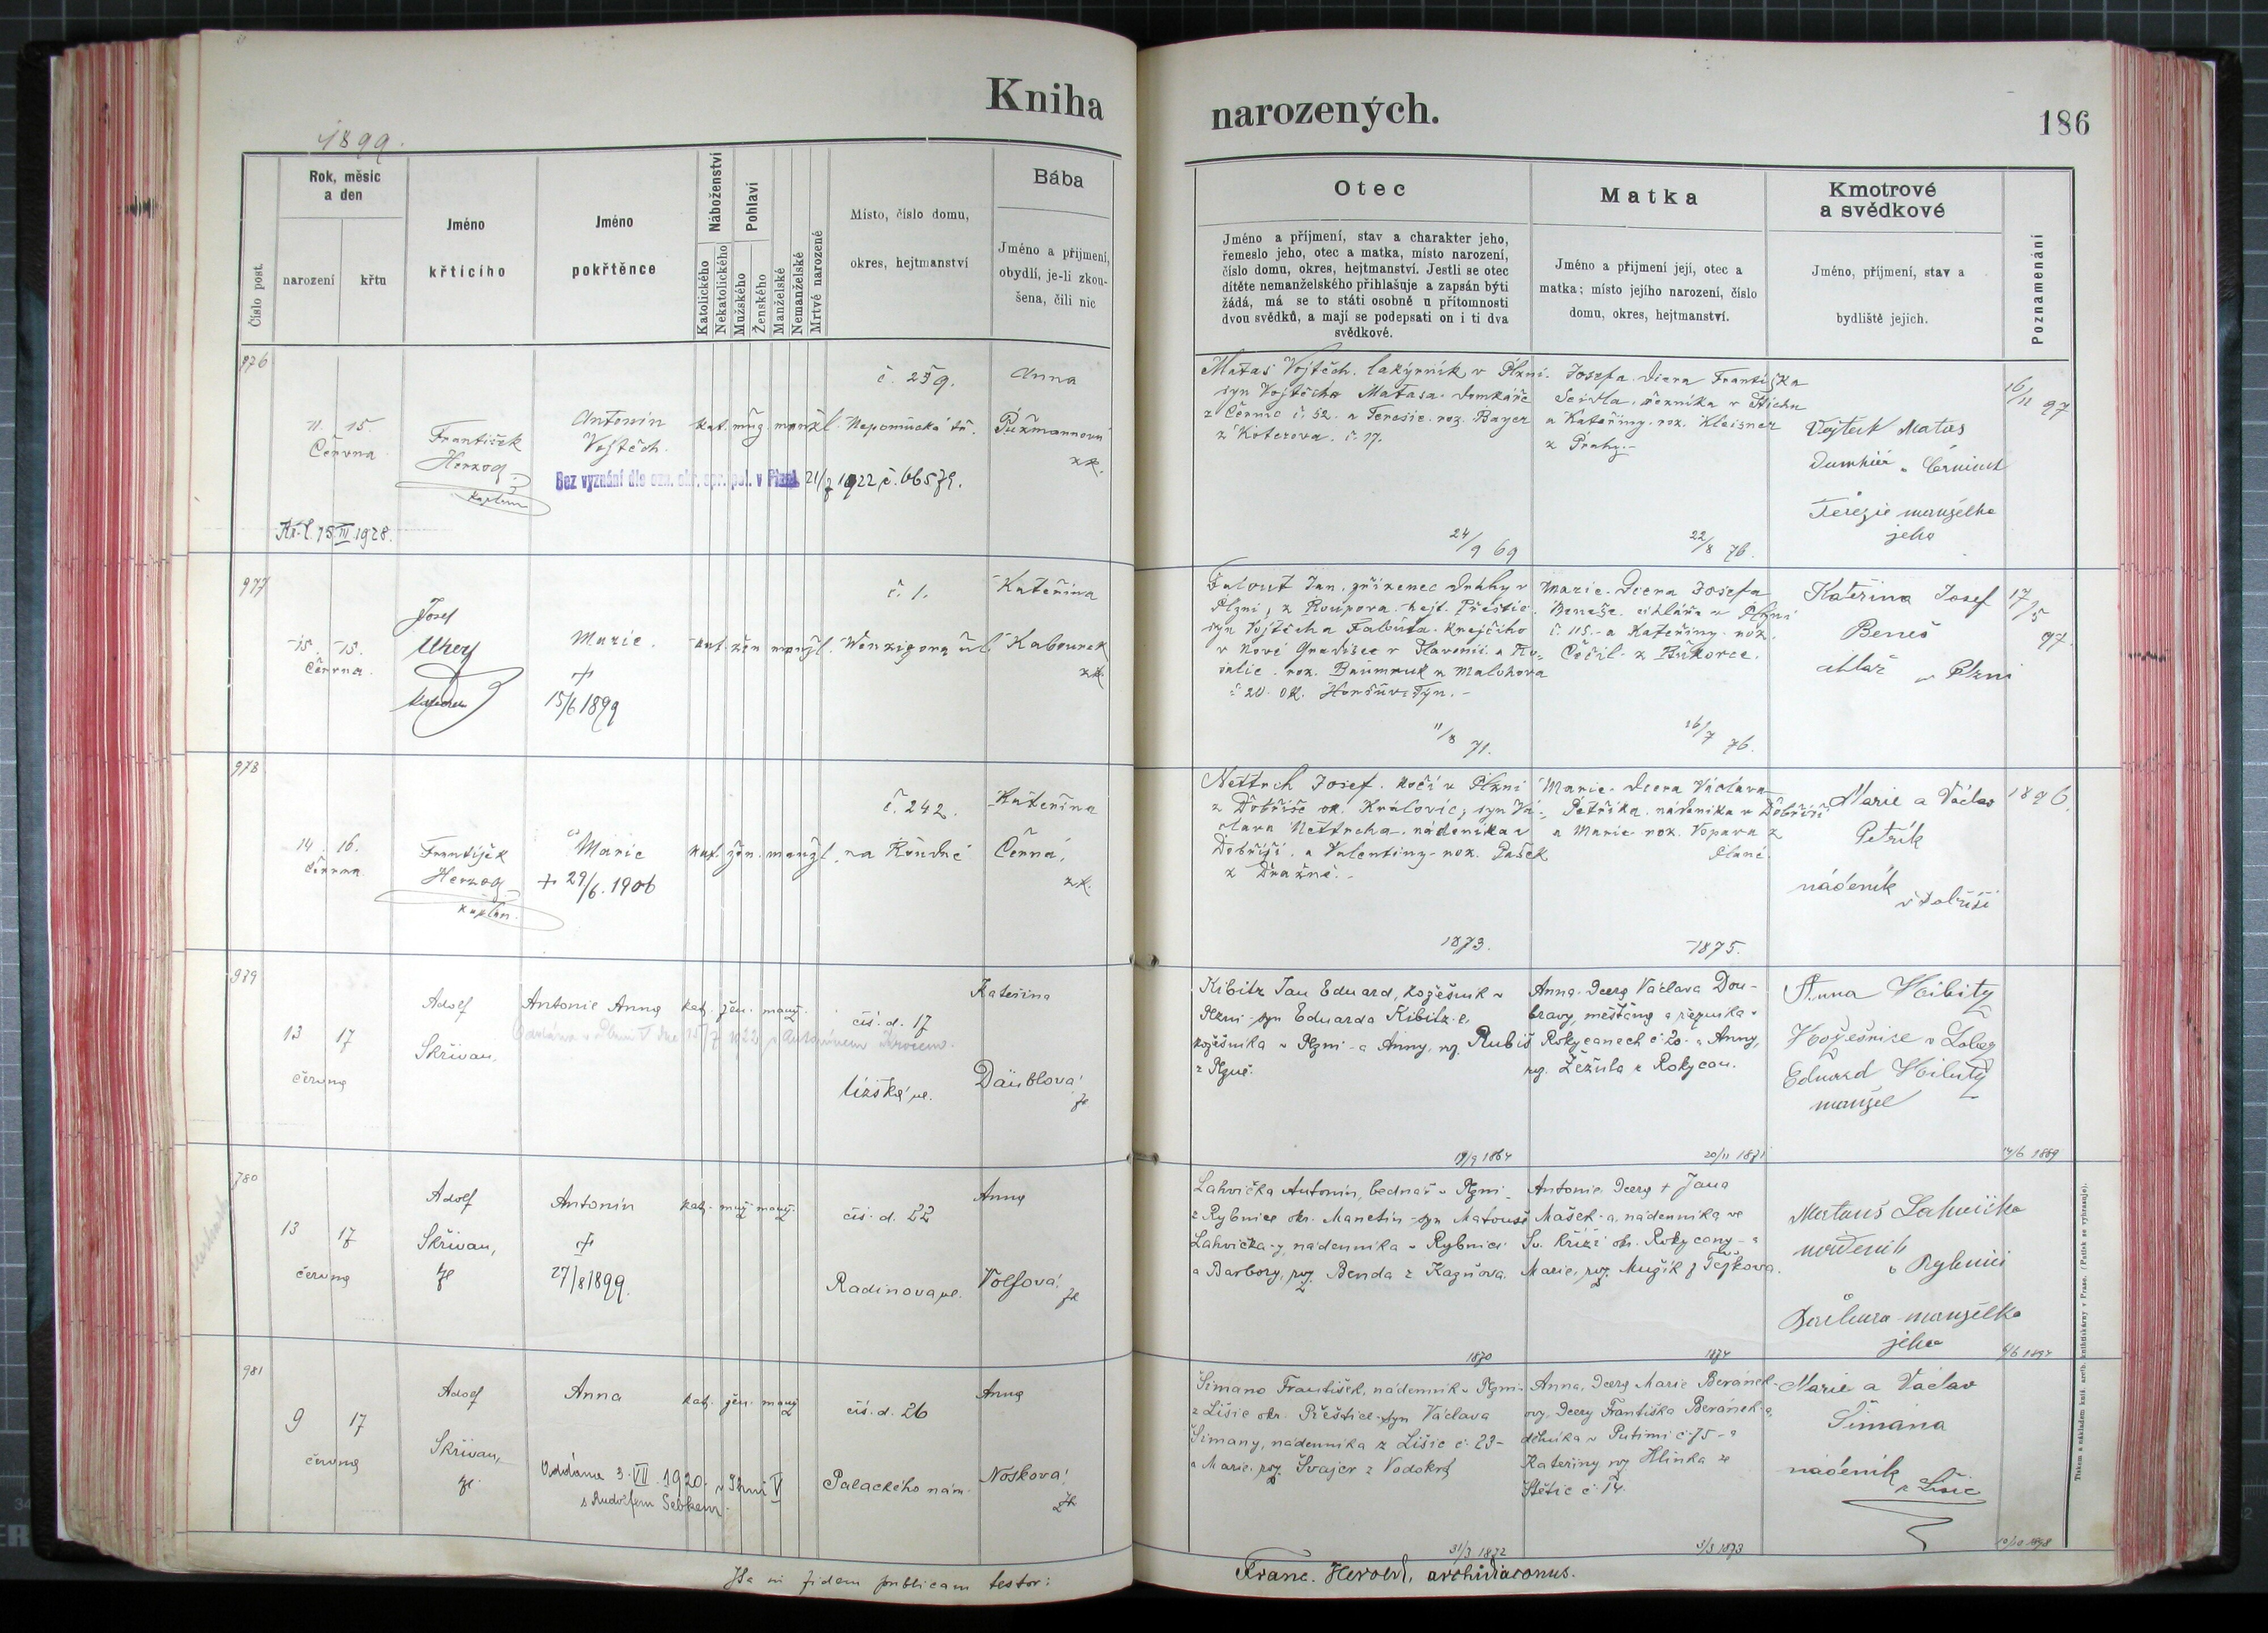 Kniha
narozených.
186
1899.
Číslo post.
Rok, měsíc
a den
narození
křtu
Jméno
křtícího
Jméno
pokřtěnce
Náboženství
Katolického
Nekatolického
Pohlaví
Mužského
Ženského
Manželské
Nemanželské
Mrtvě narozené
Místo, číslo domu,
okres, hejtmanství
Bába
Jméno a příjmení,
obydlí, je-li zkou-
šena, čili nic
Otec
Jméno a příjmení, stav a charakter jeho,
řemeslo jeho, otec a matka, místo narození,
číslo domu, okres, hejtmanství. Jestli se otec
dítěte nemanželského přihlašuje a zapsán býti
žádá, má se to státi osobně u přítomnosti
dvou svědků, a mají se podepsati on i ti dva
svědkové.
Matka
Jméno a příjmení její, otec a
matka; místo jejího narození, číslo
domu, okres, hejtmanství.
Kmotrové
a svědkové
Jméno, příjmení, stav a
bydliště jejich.
Poznamenání
976
11. 15.
Června
František
Herzog
kaplan
Antonín
Vojtěch.
kat. muž. manžl.
č. 259.
Nepomucká tř.
Anna
zk.
Bez vyznání dle ozn. okr. spr. pol. v Plzni 21/7 1922 č. 66579.
Kř. l. 15 III 1928.
Matas Vojtěch. lakýrník v Plzni.
syn Vojtěcha Matasa. domkáře
z Černic č. 52. a Teresie. roz. Bayer
z Koterova. č. 17.
24/9 69
Josefa. dcera Františka
Seidla.
a Kateřiny. roz. Kleisner
z Prahy.-
22/8 76.
Vojtěch Matas
Terezie manželka
jeho
16/11 97
977
15. 15.
Června.
Josef
Marie.
+
15/6 1899
kat. žen manžl.
č. 1.
Wenzigova ul.
Kateřina
Kabourek
zk.
Falout Jan. zřízenec dráhy v
Plzni, z Roupova. hejt. Přeštic.
syn Vojtěcha Falouta. krejčího
11/8 71.
Marie. Dcera Josefa
Beneše. cihláře v Plzni
č. 115.- a Kateřiny. roz.
z Bukovce.
26/7 76.
Kateřina Josef
Beneš
cihlář v Plzni
17/5 97.
978
14. 16.
Června
František
Herzog
kaplan.
Marie
+ 29/6. 1906
kat. žen. manžl.
č. 242.
na Roudné
Kateřina
Černá,
zk.
Nettrch Josef. kočí v Plzni
z Dobříče ok. Kralovic, syn Vá-
clava Nettrcha. nádeníka v
Dobříči. a Valentiny. roz. Pašek
z Dražně.-
1873.
Marie. dcera Václava
Petříka. nádeníka v Dobříči
a Marie roz. Vopava z
Plané.
1875.
Marie a Václav
Petrík
nádeník
v Dobříči
1896.
979
13 17
června
Adolf
Skřivan,
Antonie Anna
kat. žen. manž.
čís. d. 17
Kateřina
Däublova!
zk
Kibitz Jan Eduard, kožešník v
Plzni syn Eduarda Kibitz-e,
kožešníka v Plzni a Anny, roz. Rubiš
z Plzně.
19/9 1864
Anna. Dcera Václava Dou-
bravy, měšťana a řezníka v
Rokycanech č. 20. a Anny,
roz. Žežula z Rokycan.
20/11 1871
Anna Kibitz
Eduard Kibitz
manžel
14/6 1889
980
13 17
června
Adolf
Skřivan,
zk
Antonín
+
27/8 1899.
kat. muž. manž.
čís. d. 22
Radinova ul.
Anna
Volfová!
zk
Lahvička Antonín, bednář v Plzni
z Rybnice okr. Manetín syn Matouše
Lahvička-y, nádenníka v Rybnici
a Barbory, roz. Benda z Kaznova.
1870
Antonie, Dcera + Jana
Mašek-a, nádenníka ve
Sv. Kříži ok. Rokycany - a
Marie, roz. Mužík z Tejkova.
1874
Matouš Lahvička
v Rybnici
Barbora manželka
jeho
981
9 17
června
Adolf
Skřivan,
zk
Anna
Oddána 3. VII. 1920. v Plzni V
s Rudolfem
kat. žen. manž
čís. d. 26
Palackého nám.
Anna
Nosková!
zk
Šimano František, nádenník v Plzni
z Lišic okr. Přeštice syn Václava
Šimany, nádenníka z Lišic č. 23-
a Marie, roz. Švajcr z Vodokrt
31/3 1872
Anna, Dcera Marie Beránek-
ovy, Dcery Františka Beránek-a,
dělníka v Putimi č. 75 - a
Kateřiny roz Hlinka ze
Štětic č. 14.
5/3 1873
Marie a Václav
Šimana
nádeník
z Lišic
Franc. Herold, archidiaconus.
Tiskem a nákladem kníž. arcib. knihtiskárny v Praze. (Patisk se vyhrazuje).